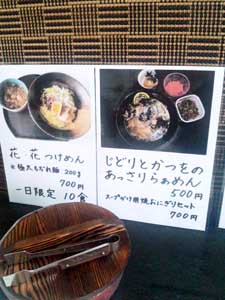 花・花つけめん
※極太もちれ麺 200g
700円
一日限定 10食
じどりとかつをの
あっさりらぁめん
500円
スープかけ用焼おにぎりセット
700円